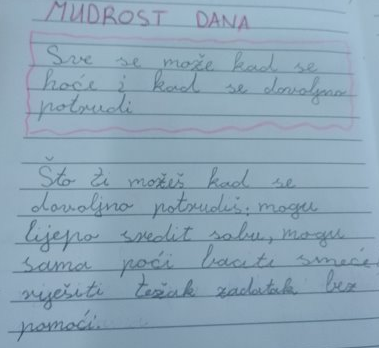 MUDROST DANA
Sve se može kad se
hoće i kad se dovoljno
potrudi
Što ti možeš kad se
dovoljno potrudiš: mogu
lijepo sredit sobu, mogu
sama poći baciti smeće,
riješiti težak zadatak bez
pomoći.